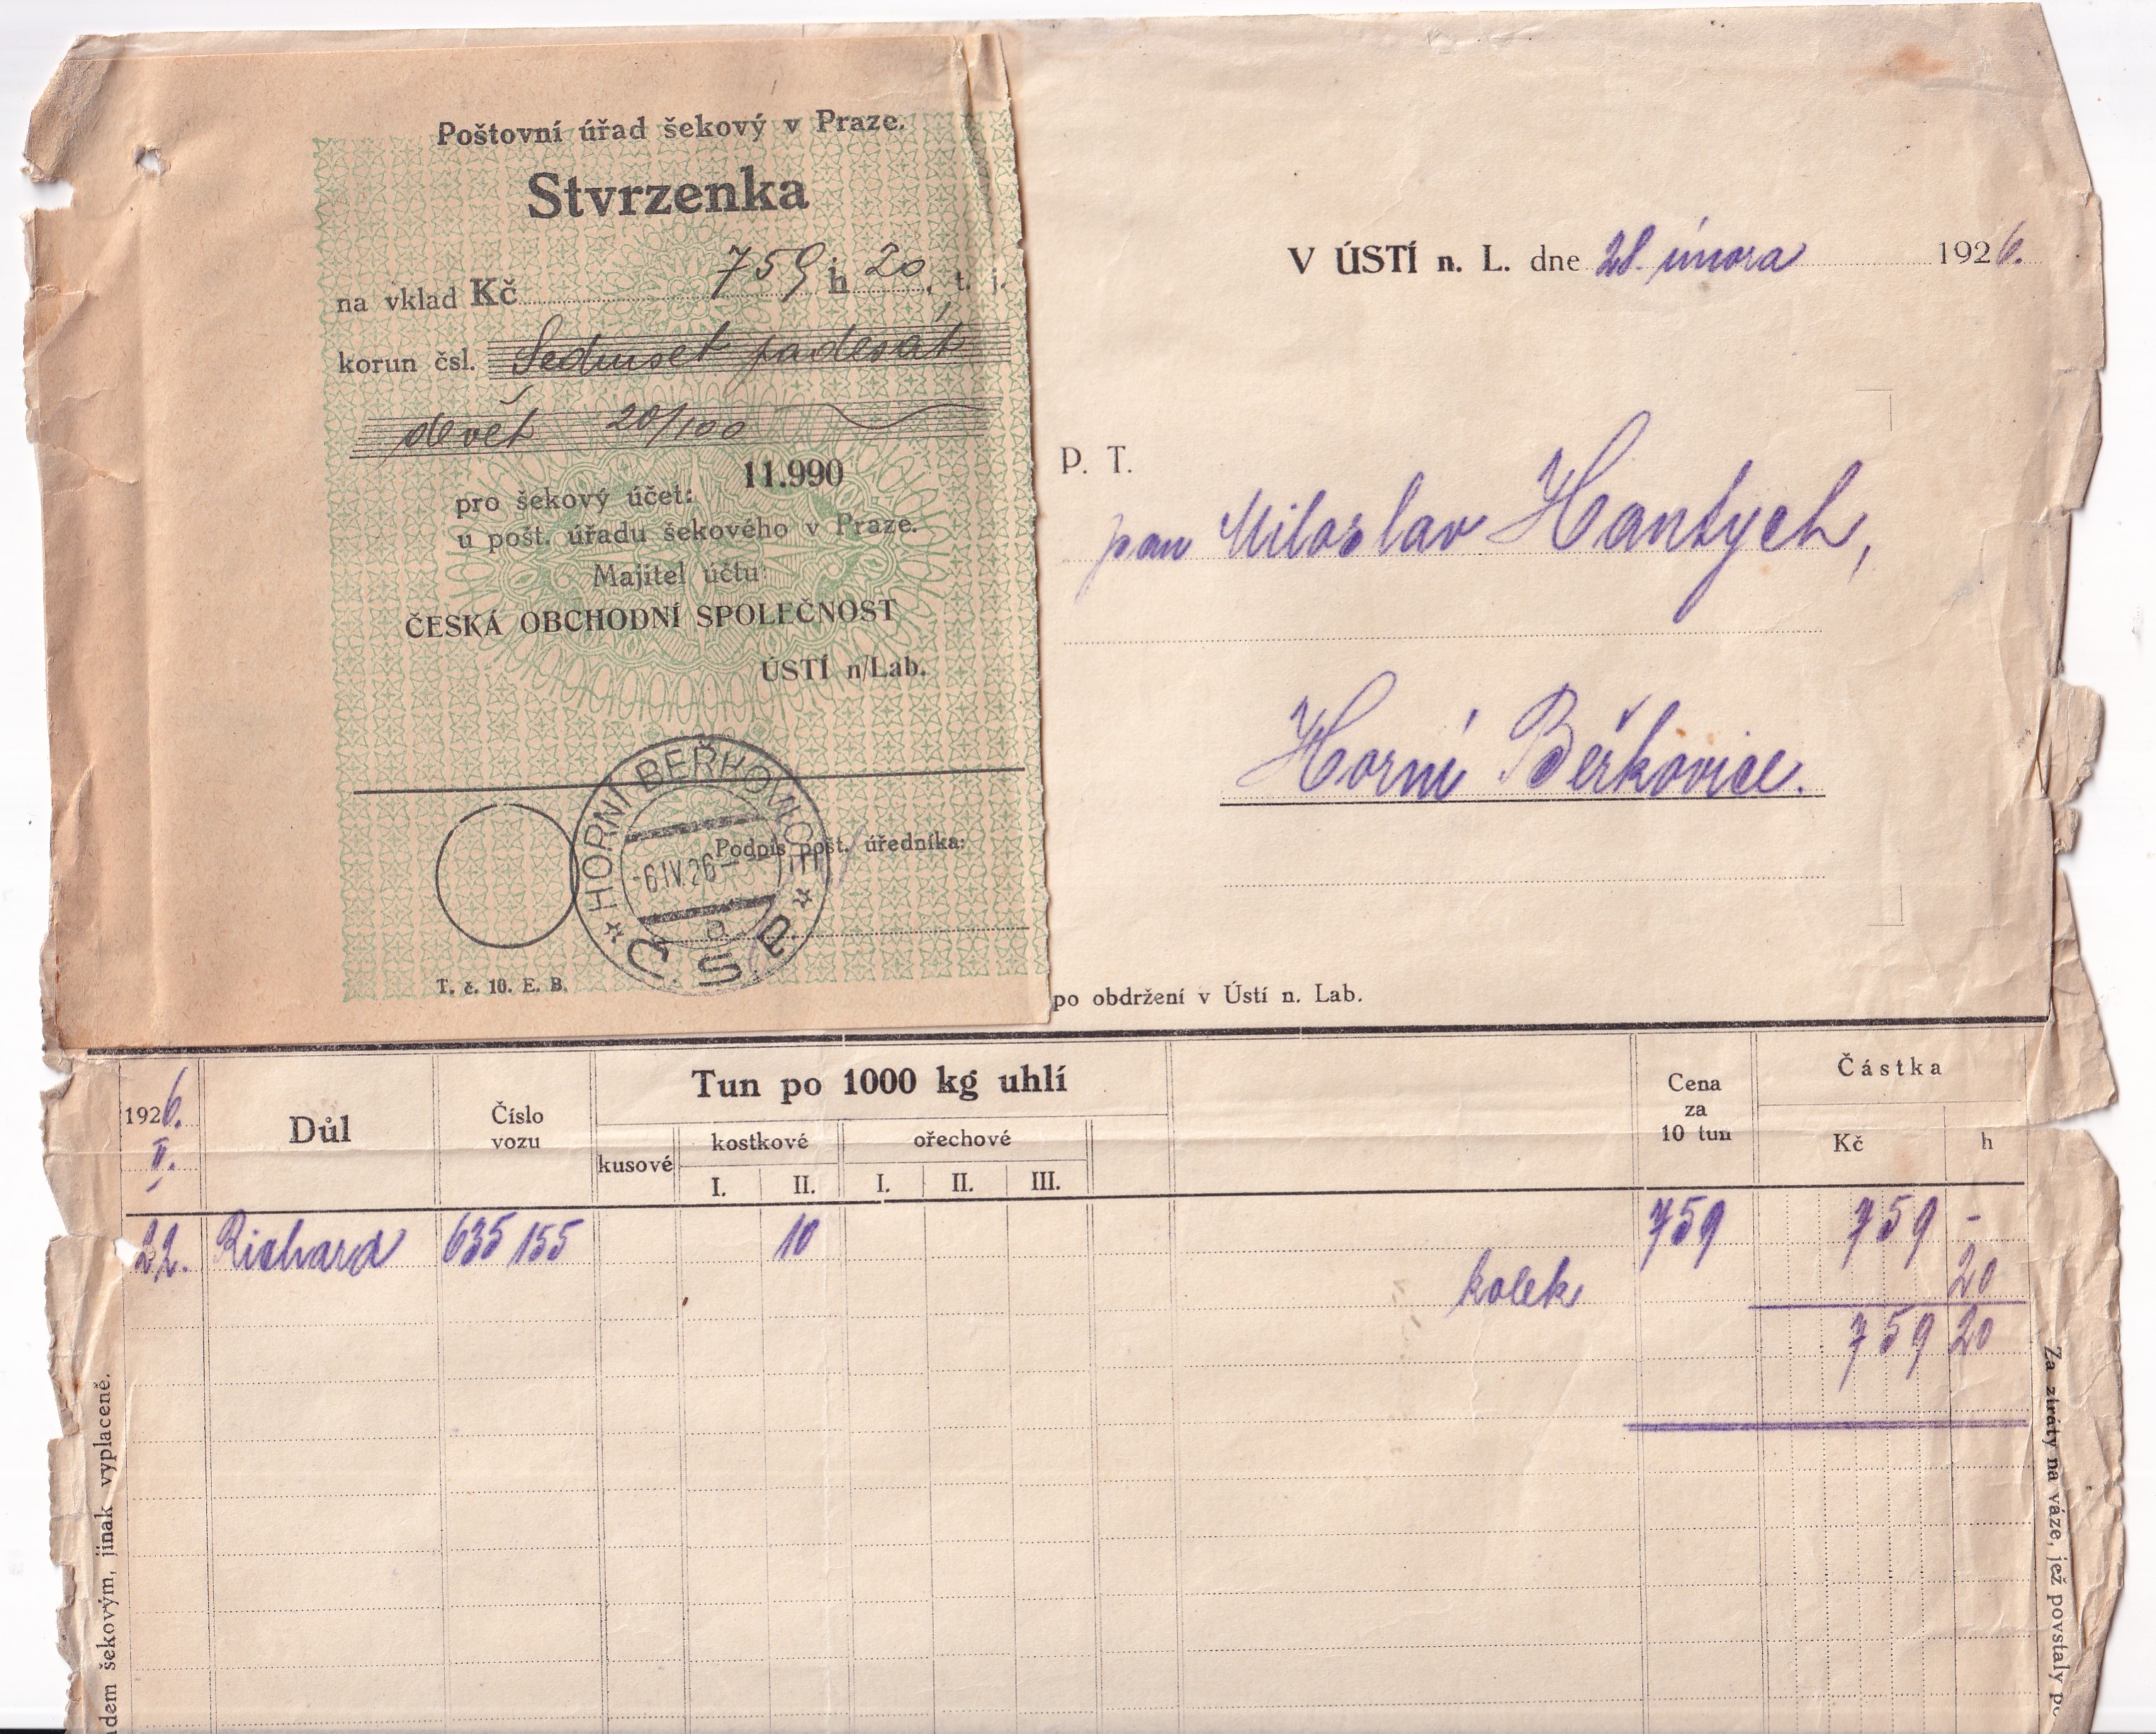 Poštovní úřad šekový v Praze.
Stvrzenka
na vklad Kč 759 h 20, t. j.
korun čsl. Sedmset padesát
devět 20/100
pro šekový účet: 11.990
u pošt. úřadu šekového v Praze.
Majitel účtu
ČESKÁ OBCHODNÍ SPOLEČNOST
ÚSTÍ n/Lab.
HORNÍ BEŘKOVICE
-6 IV 26-
a
Č.S.P.
Podpis pošt. úředníka:
T. č. 10. E. B.
V ÚSTÍ n. L. dne 28. února 1926.
P. T.
pan Miloslav Hantych,
Horní Beřkovice.
po obdržení v Ústí n. Lab.
1926. II.
Důl
Číslo vozu
Tun po 1000 kg uhlí
kusové
kostkové
I. II.
ořechové
I. II. III.
Cena za 10 tun
Částka
Kč h
22. Richard 635 155 10 759 759 -
kolek 20
759 20
adem šekovým, jinak vyplaceně.
Za ztráty na váze, jež povstaly po